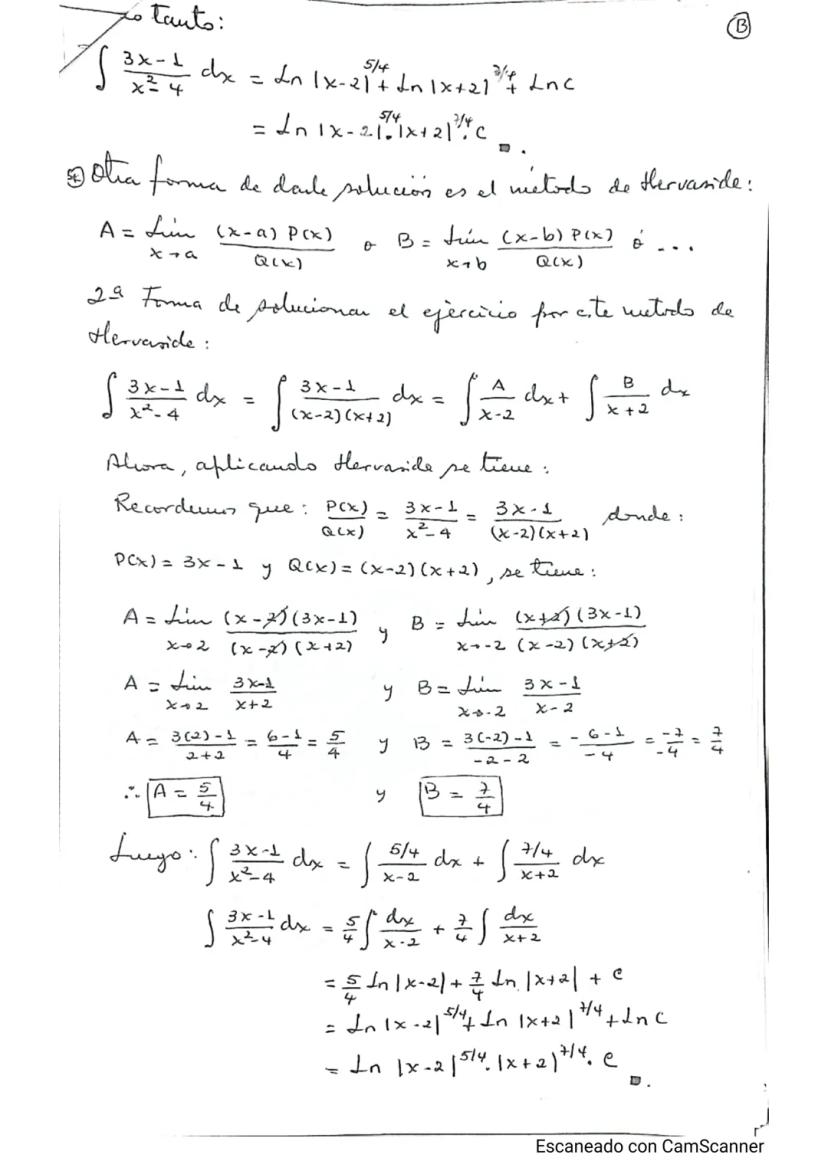 lo tanto:
Ⓑ
∫ (3x-1)/(x²-4) dx = Ln |x-2|^5/4 + Ln |x+2|^7/4 + Ln c
= Ln |x-2|^5/4 . |x+2|^7/4 . c
Otra forma de darle solución es el método de Hervaside:
A = Lim x→a (x-a) P(x) / Q(x) o B = Lim x→b (x-b) P(x) / Q(x) ó ...
2ª Forma de solucionar el ejercicio por este metodo de
Hervaside:
∫ (3x-1)/(x²-4) dx = ∫ (3x-1)/((x-2)(x+2)) dx = ∫ A/(x-2) dx + ∫ B/(x+2) dx
Ahora, aplicando Hervaside se tiene:
Recordemos que: P(x)/Q(x) = (3x-1)/(x²-4) = (3x-1)/((x-2)(x+2)) donde:
P(x) = 3x-1 y Q(x) = (x-2)(x+2), se tiene:
A = Lim x→2 (x-2)(3x-1) / (x-2)(x+2) y B = Lim x→-2 (x+2)(3x-1) / (x-2)(x+2)
A = Lim x→2 (3x-1)/(x+2) y B = Lim x→-2 (3x-1)/(x-2)
A = (3(2)-1)/(2+2) = (6-1)/4 = 5/4 y B = (3(-2)-1)/(-2-2) = (-6-1)/(-4) = -7/-4 = 7/4
∴ A = 5/4 y B = 7/4
Luego: ∫ (3x-1)/(x²-4) dx = ∫ (5/4)/(x-2) dx + ∫ (7/4)/(x+2) dx
∫ (3x-1)/(x²-4) dx = 5/4 ∫ dx/(x-2) + 7/4 ∫ dx/(x+2)
= 5/4 Ln |x-2| + 7/4 Ln |x+2| + C
= Ln |x-2|^5/4 + Ln |x+2|^7/4 + Ln C
= Ln |x-2|^5/4 . |x+2|^7/4 . C
Escaneado con CamScanner